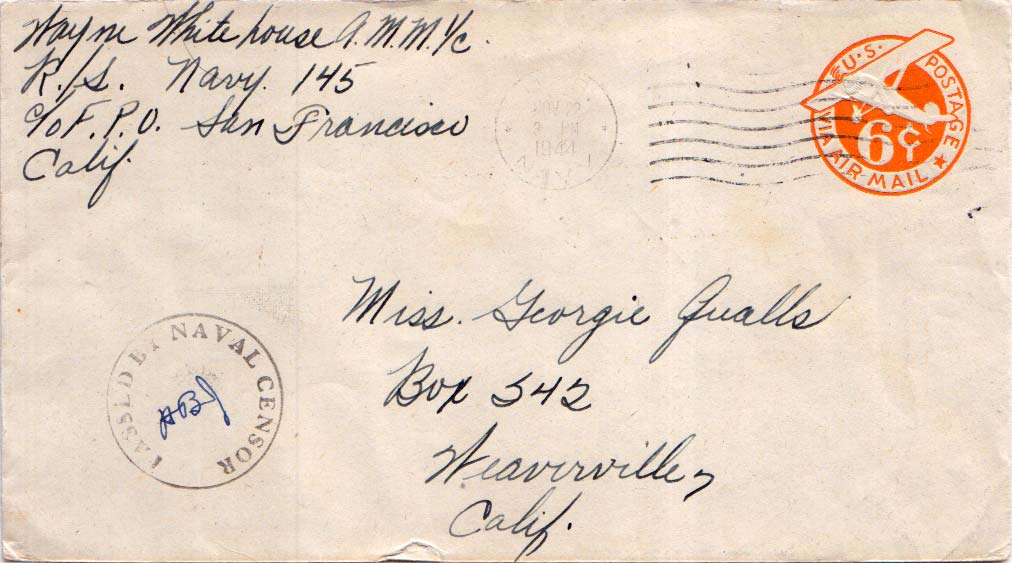 Wayne Whitehouse A.M.M. 1/c.
R/S. Navy. 145
C/o F.P.O. San Francisco
Calif.
1944
U.S. POSTAGE
6¢
VIA AIR MAIL
Miss. Georgie Qualls
Box 342
Weaverville,
Calif.
PASSED BY NAVAL CENSOR